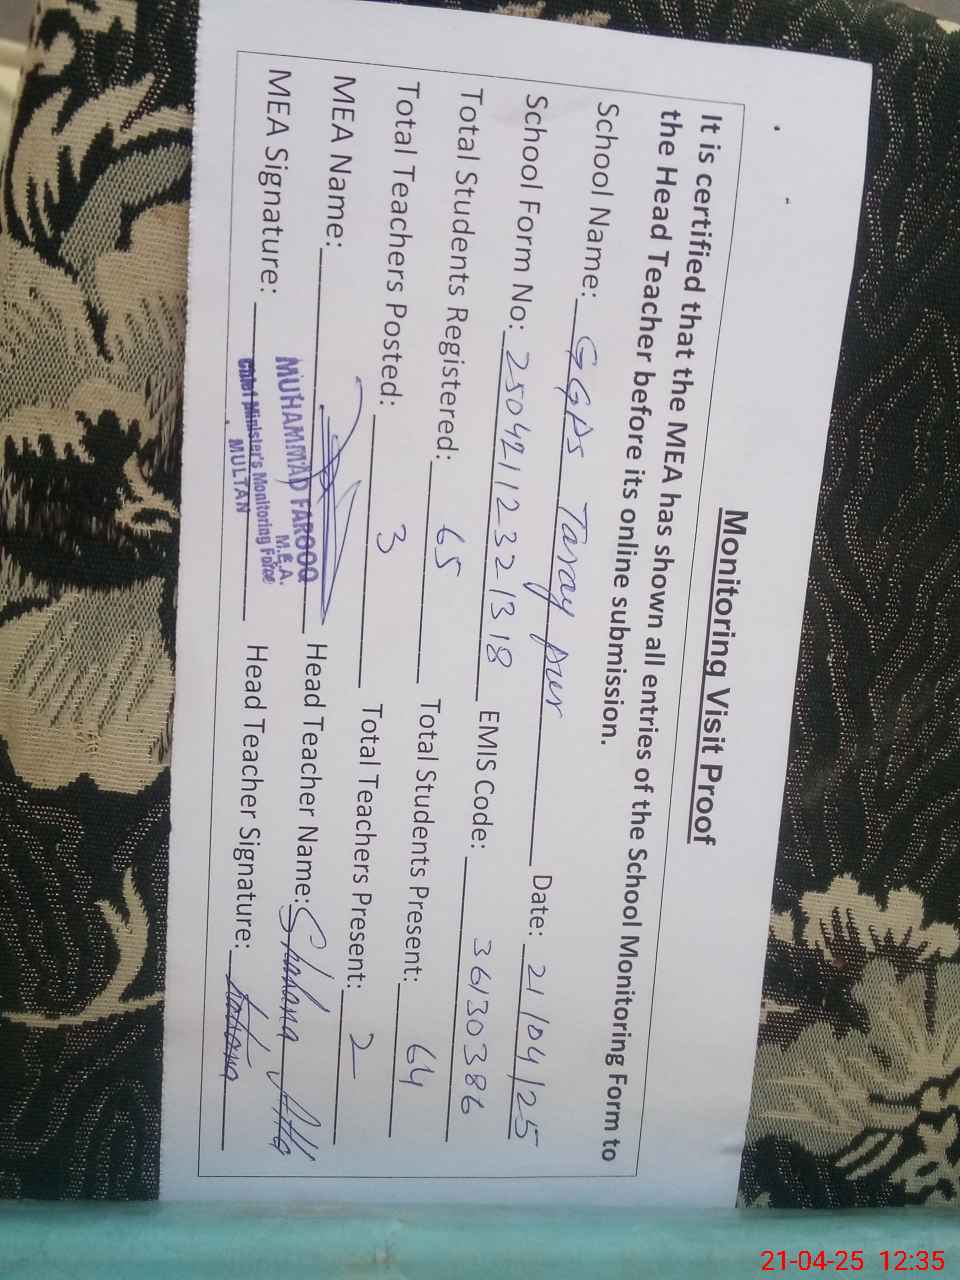 Monitoring Visit Proof
It is certified that the MEA has shown all entries of the School Monitoring Form to
the Head Teacher before its online submission.
School Name: GGPS Taray pur Date: 21/04/25
School Form No: 25042112321318 EMIS Code: 36130386
Total Students Registered: 65 Total Students Present: 64
Total Teachers Posted: 3 Total Teachers Present: 2
MEA Name: Head Teacher Name: Shahana
MUHAMMAD FAROOQ
M.E.A.
MEA Signature: Head Teacher Signature:
Chief Minister's Monitoring Force
MULTAN
21-04-25 12:35